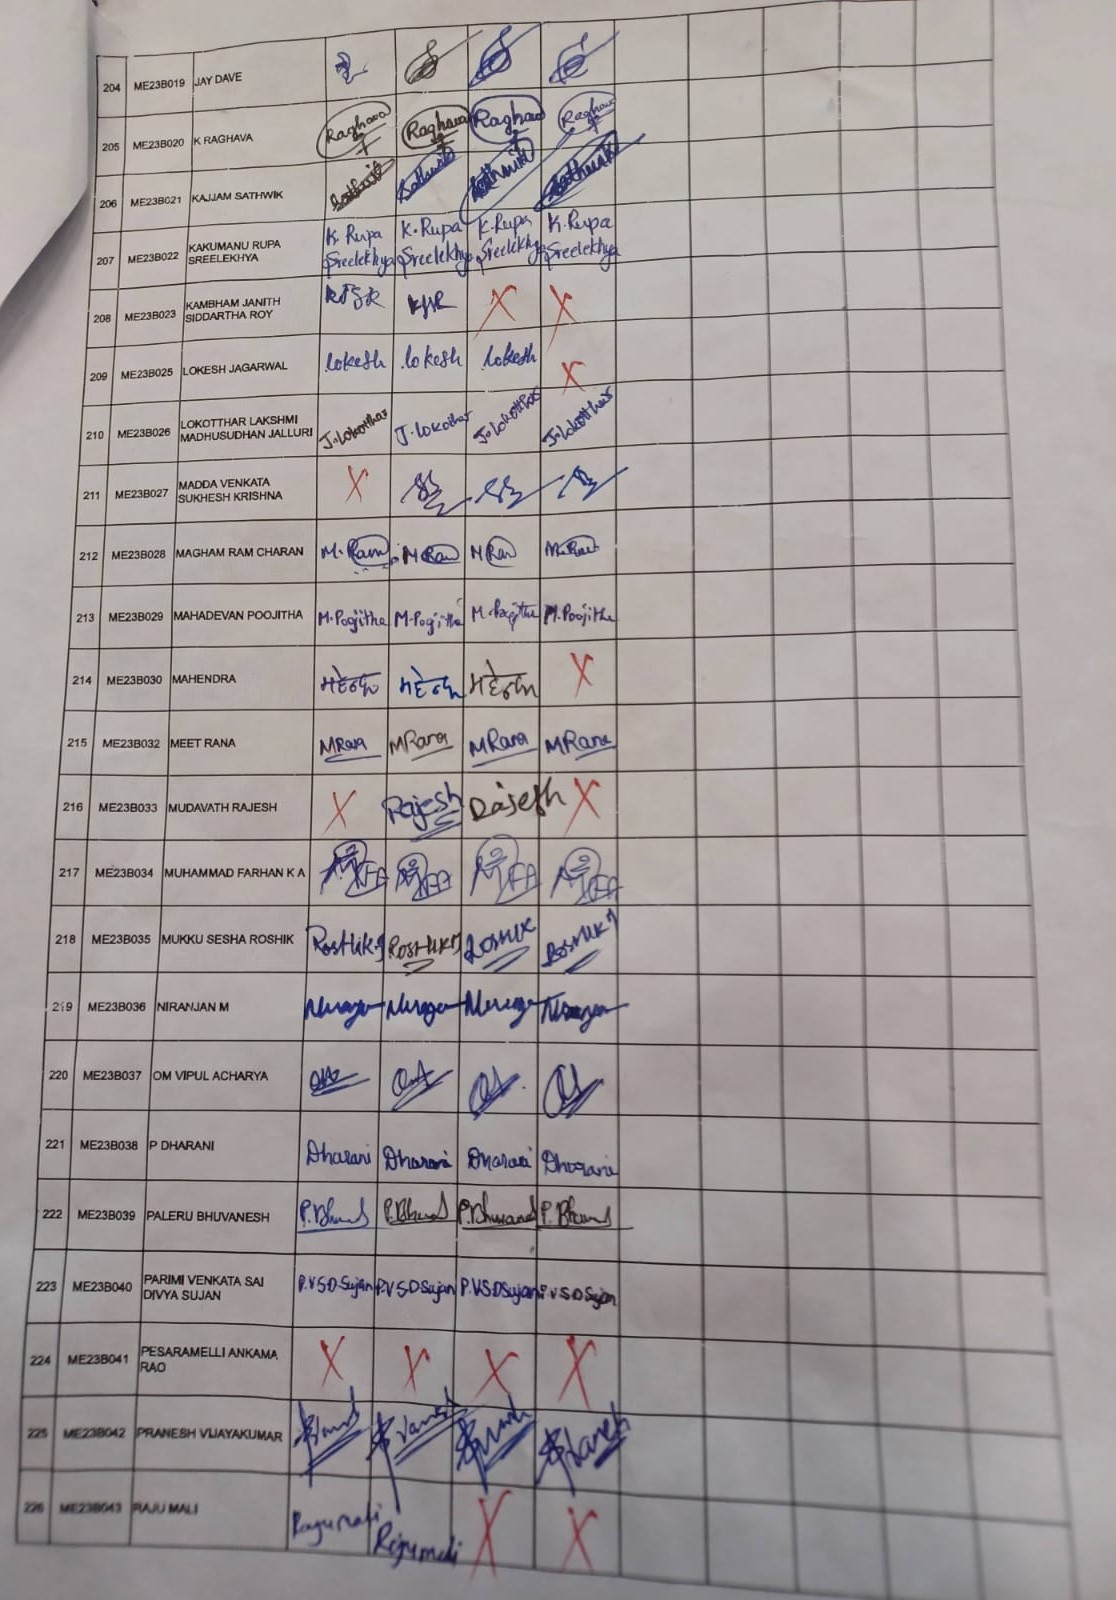 204 ME23B019 JAY DAVE
205 ME23B020 K RAGHAVA Raghava Raghava Raghava Raghava
206 ME23B021 KAJJAM SATHWIK Sathwik Sathwik Sathwik Sathwik
207 ME23B022 KAKUMANU RUPA K. Rupa K. Rupa K. Rupa K. Rupa
SREELEKHYA Sreelekhya Sreelekhya Sreelekhya Sreelekhya
208 ME23B023 KAMBHAM JANITH KJSR KJSR X X
SIDDARTHA ROY
209 ME23B025 LOKESH JAGARWAL Lokesh Lokesh Lokesh X
210 ME23B026 LOKOTTHAR LAKSHMI J. Lokotthar J. Lokotthar J. Lokotthar J. Lokotthar
MADHUSUDHAN JALLURI
211 ME23B027 MADDA VENKATA X
SUKHESH KRISHNA
212 ME23B028 MAGHAM RAM CHARAN M. Ram M Ram M Ram M. Ram
213 ME23B029 MAHADEVAN POOJITHA M. Poojitha M. Poojitha M. Poojitha M. Poojitha
214 ME23B030 MAHENDRA महेन्द्र महेन्द्र महेन्द्र X
215 ME23B032 MEET RANA MRana MRana MRana MRana
216 ME23B033 MUDAVATH RAJESH X Rajesh Rajesh X
217 ME23B034 MUHAMMAD FARHAN K A
218 ME23B035 MUKKU SESHA ROSHIK RosHik.M ROSHIK M ROSHIK ROSHIK M
219 ME23B036 NIRANJAN M Niranjan Niranjan Niranjan Niranjan
220 ME23B037 OM VIPUL ACHARYA
221 ME23B038 P DHARANI Dharani Dharani Dharani Dharani
222 ME23B039 PALERU BHUVANESH
223 ME23B040 PARIMI VENKATA SAI P.V.S.D.Sujan P.V.S.D.Sujan P.V.S.D.Sujan P.V.S.D.Sujan
DIVYA SUJAN
224 ME23B041 PESARAMELLI ANKAMA X X X X
RAO
225 ME23B042 PRANESH VIJAYAKUMAR
226 ME23B043 RAJU MALI Rajumali Rajumali X X